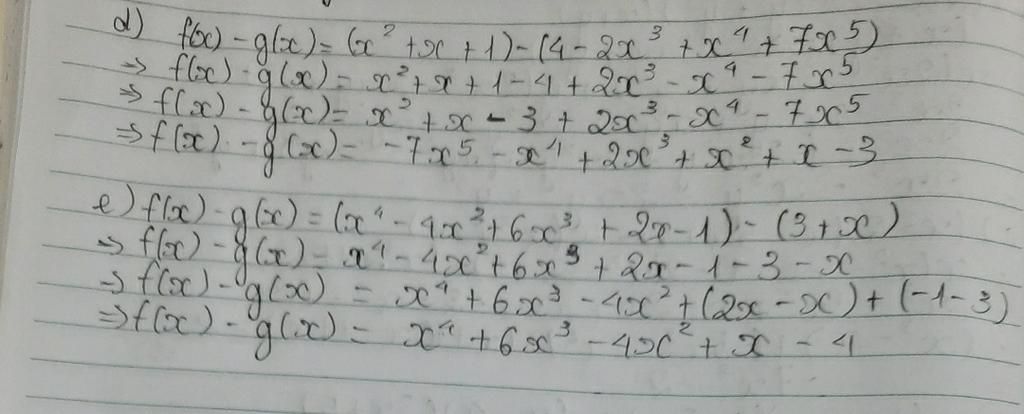 d) f(x) - g(x) = (x² + x + 1) - (4 - 2x³ + x⁴ + 7x⁵)
=> f(x) - g(x) = x² + x + 1 - 4 + 2x³ - x⁴ - 7x⁵
=> f(x) - g(x) = x² + x - 3 + 2x³ - x⁴ - 7x⁵
=> f(x) - g(x) = -7x⁵ - x⁴ + 2x³ + x² + x - 3
e) f(x) - g(x) = (x⁴ - 4x² + 6x³ + 2x - 1) - (3 + x)
=> f(x) - g(x) = x⁴ - 4x² + 6x³ + 2x - 1 - 3 - x
=> f(x) - g(x) = x⁴ + 6x³ - 4x² + (2x - x) + (-1 - 3)
=> f(x) - g(x) = x⁴ + 6x³ - 4x² + x - 4